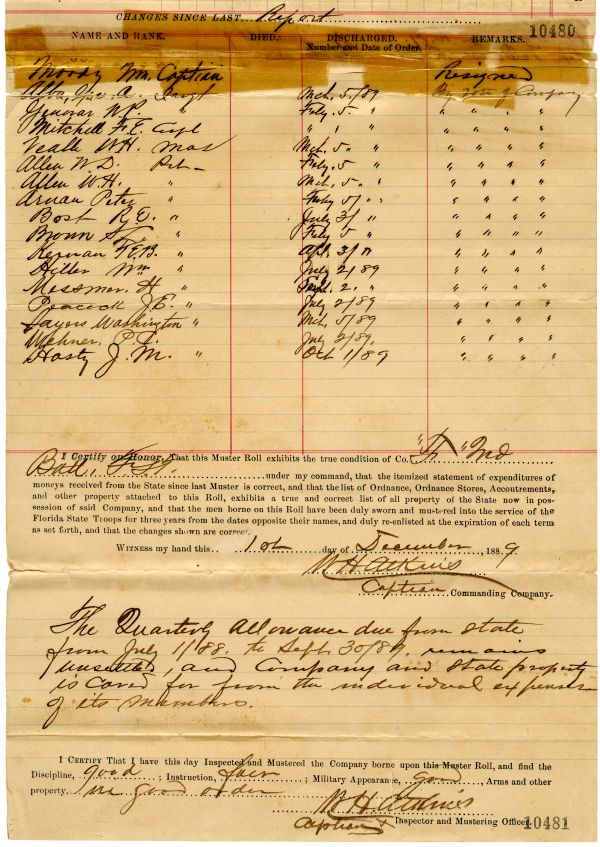 CHANGES SINCE LAST Report
10480
NAME AND RANK. DIED. DISCHARGED. Number and Date of Order. REMARKS.
Moody Wm. Captian Resigned
Alba, A. Mch. 5/89 By Vote of Company
Jenovar W.P. " Feby. 5 " " " " "
Mitchell F.E. Corpl " " " " " " "
Veall W.H. Mus Mch. 5 " " " " "
Allen W.D. Pvt - Feby. 5 " " " " "
Allen W.H. " Mch. 5 " " " " " "
Arnau Peter " Feby 5/ " " " " " "
Bost R.E. " July 3/ " " " " "
Brown " Feby 5 " " " " "
Kernan F.E.B. " Apl. 3/ " " " " "
Hiller Wm " July 2/89 " " " "
Messmer H " Sept. 2. " " " " "
Peacock J.E. " July 2/89 " " " "
Sayers Washington " Mch. 5/89 " " " "
Wehner, P. July 2/89. " " " "
Hasty J. M. " Oct 1/89 " " " "
I Certify on Honor, That this Muster Roll exhibits the true condition of Co.
Batt. under my command, that the itemized statement of expenditures of
moneys received from the State since last Muster is correct, and that the list of Ordnance, Ordnance Stores, Accoutrements,
and other property attached to this Roll, exhibits a true and correct list of all property of the State now in pos-
session of said Company, and that the men borne on this Roll have been duly sworn and mustered into the service of the
Florida State Troops for three years from the dates opposite their names, and duly re-enlisted at the expiration of each term
as set forth, and that the changes shown are correct.
WITNESS my hand this 1st day of December 1889
W H Atkins
Captian Commanding Company.
The Quarterly Allowance due from State
from July 1/88. to Sept 30/89, remains
unsettled, and Company and State property
is cared for from the individual expense
of its members.
I CERTIFY That I have this day Inspected and Mustered the Company borne upon this Muster Roll, and find the
Discipline, good ; Instruction, fair ; Military Appearance, good, Arms and other
property. in good order
W. H. Atkins
Captian Inspector and Mustering Officer.
10481